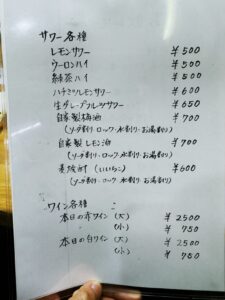 サワー各種
レモンサワー ¥500
ウーロンハイ ¥500
緑茶ハイ ¥500
ハチミツレモンサワー ¥600
生グレープフルーツサワー ¥650
自家製梅酒 ¥700
(ソーダ割り・ロック・水割り・お湯割り)
自家製レモン酒 ¥700
(ソーダ割り・ロック・水割り・お湯割り)
麦焼酎 (いいちこ) ¥600
(ソーダ割り・ロック・水割り・お湯割り)
ワイン各種
本日の赤ワイン (大) ¥2500
〃 (小) ¥750
本日の白ワイン (大) ¥2500
〃 (小) ¥750